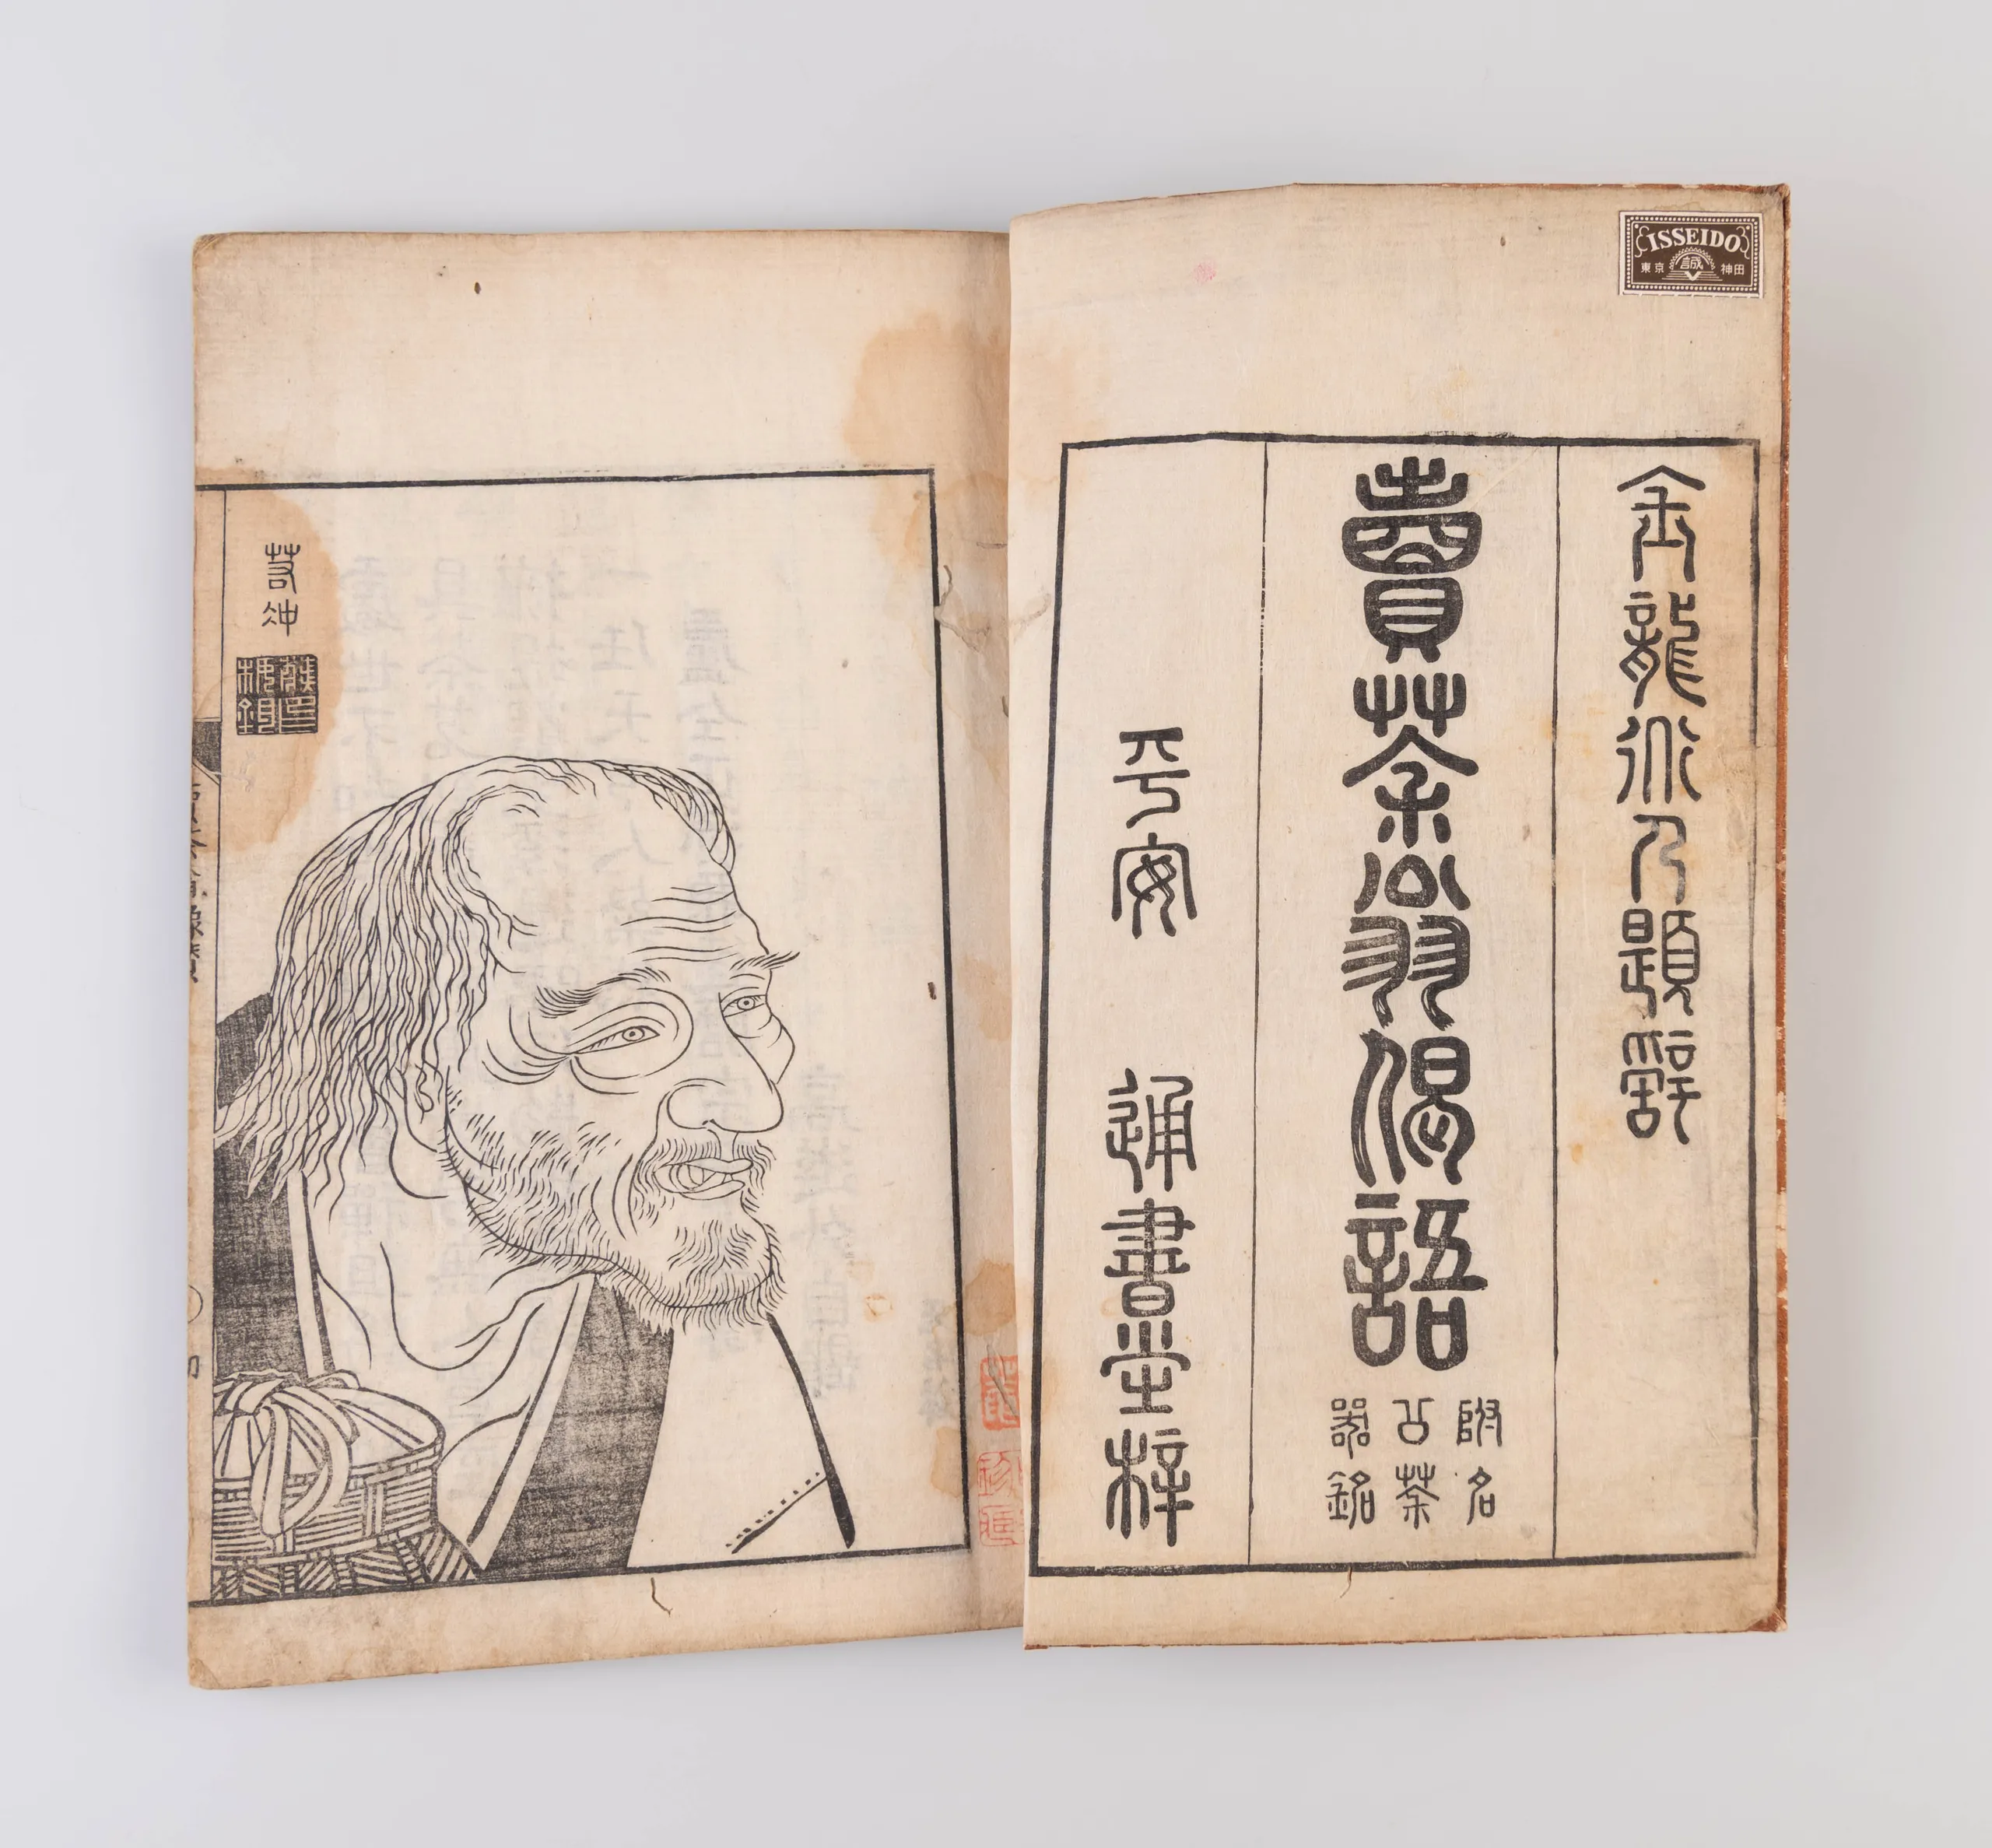 ISSEIDO
東京 誠 神田
金龍道人題辭
賣茶翁偈語
附名
公茶
器銘
平安 通書堂梓
若冲